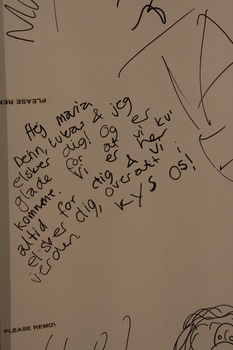 PLEASE REM
Hej maria,
Dehn, Lukas & jeg
elsker dig! og er
glade for at vi ku'
komme. Vi er her
altid for dig & vi
elsker dig, overalt i
verden. KYS OS!
PLEASE REMO